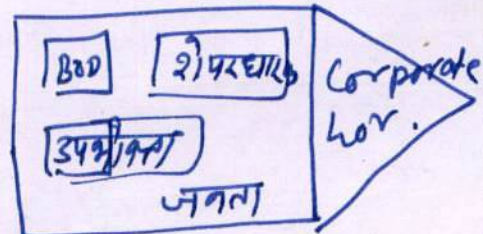 BOD
शेयरधारक
उपभोक्ता
जनता
Corporate
Gov.